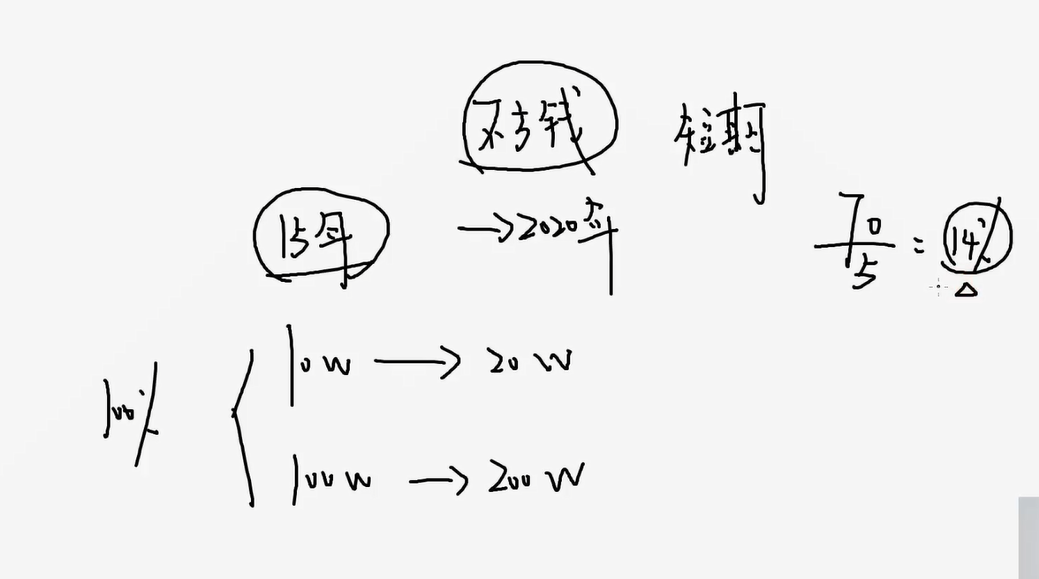 对钱 短期
15年 →2020年
70/5 = 14%
△
10W → 20W
100%
100W → 200W